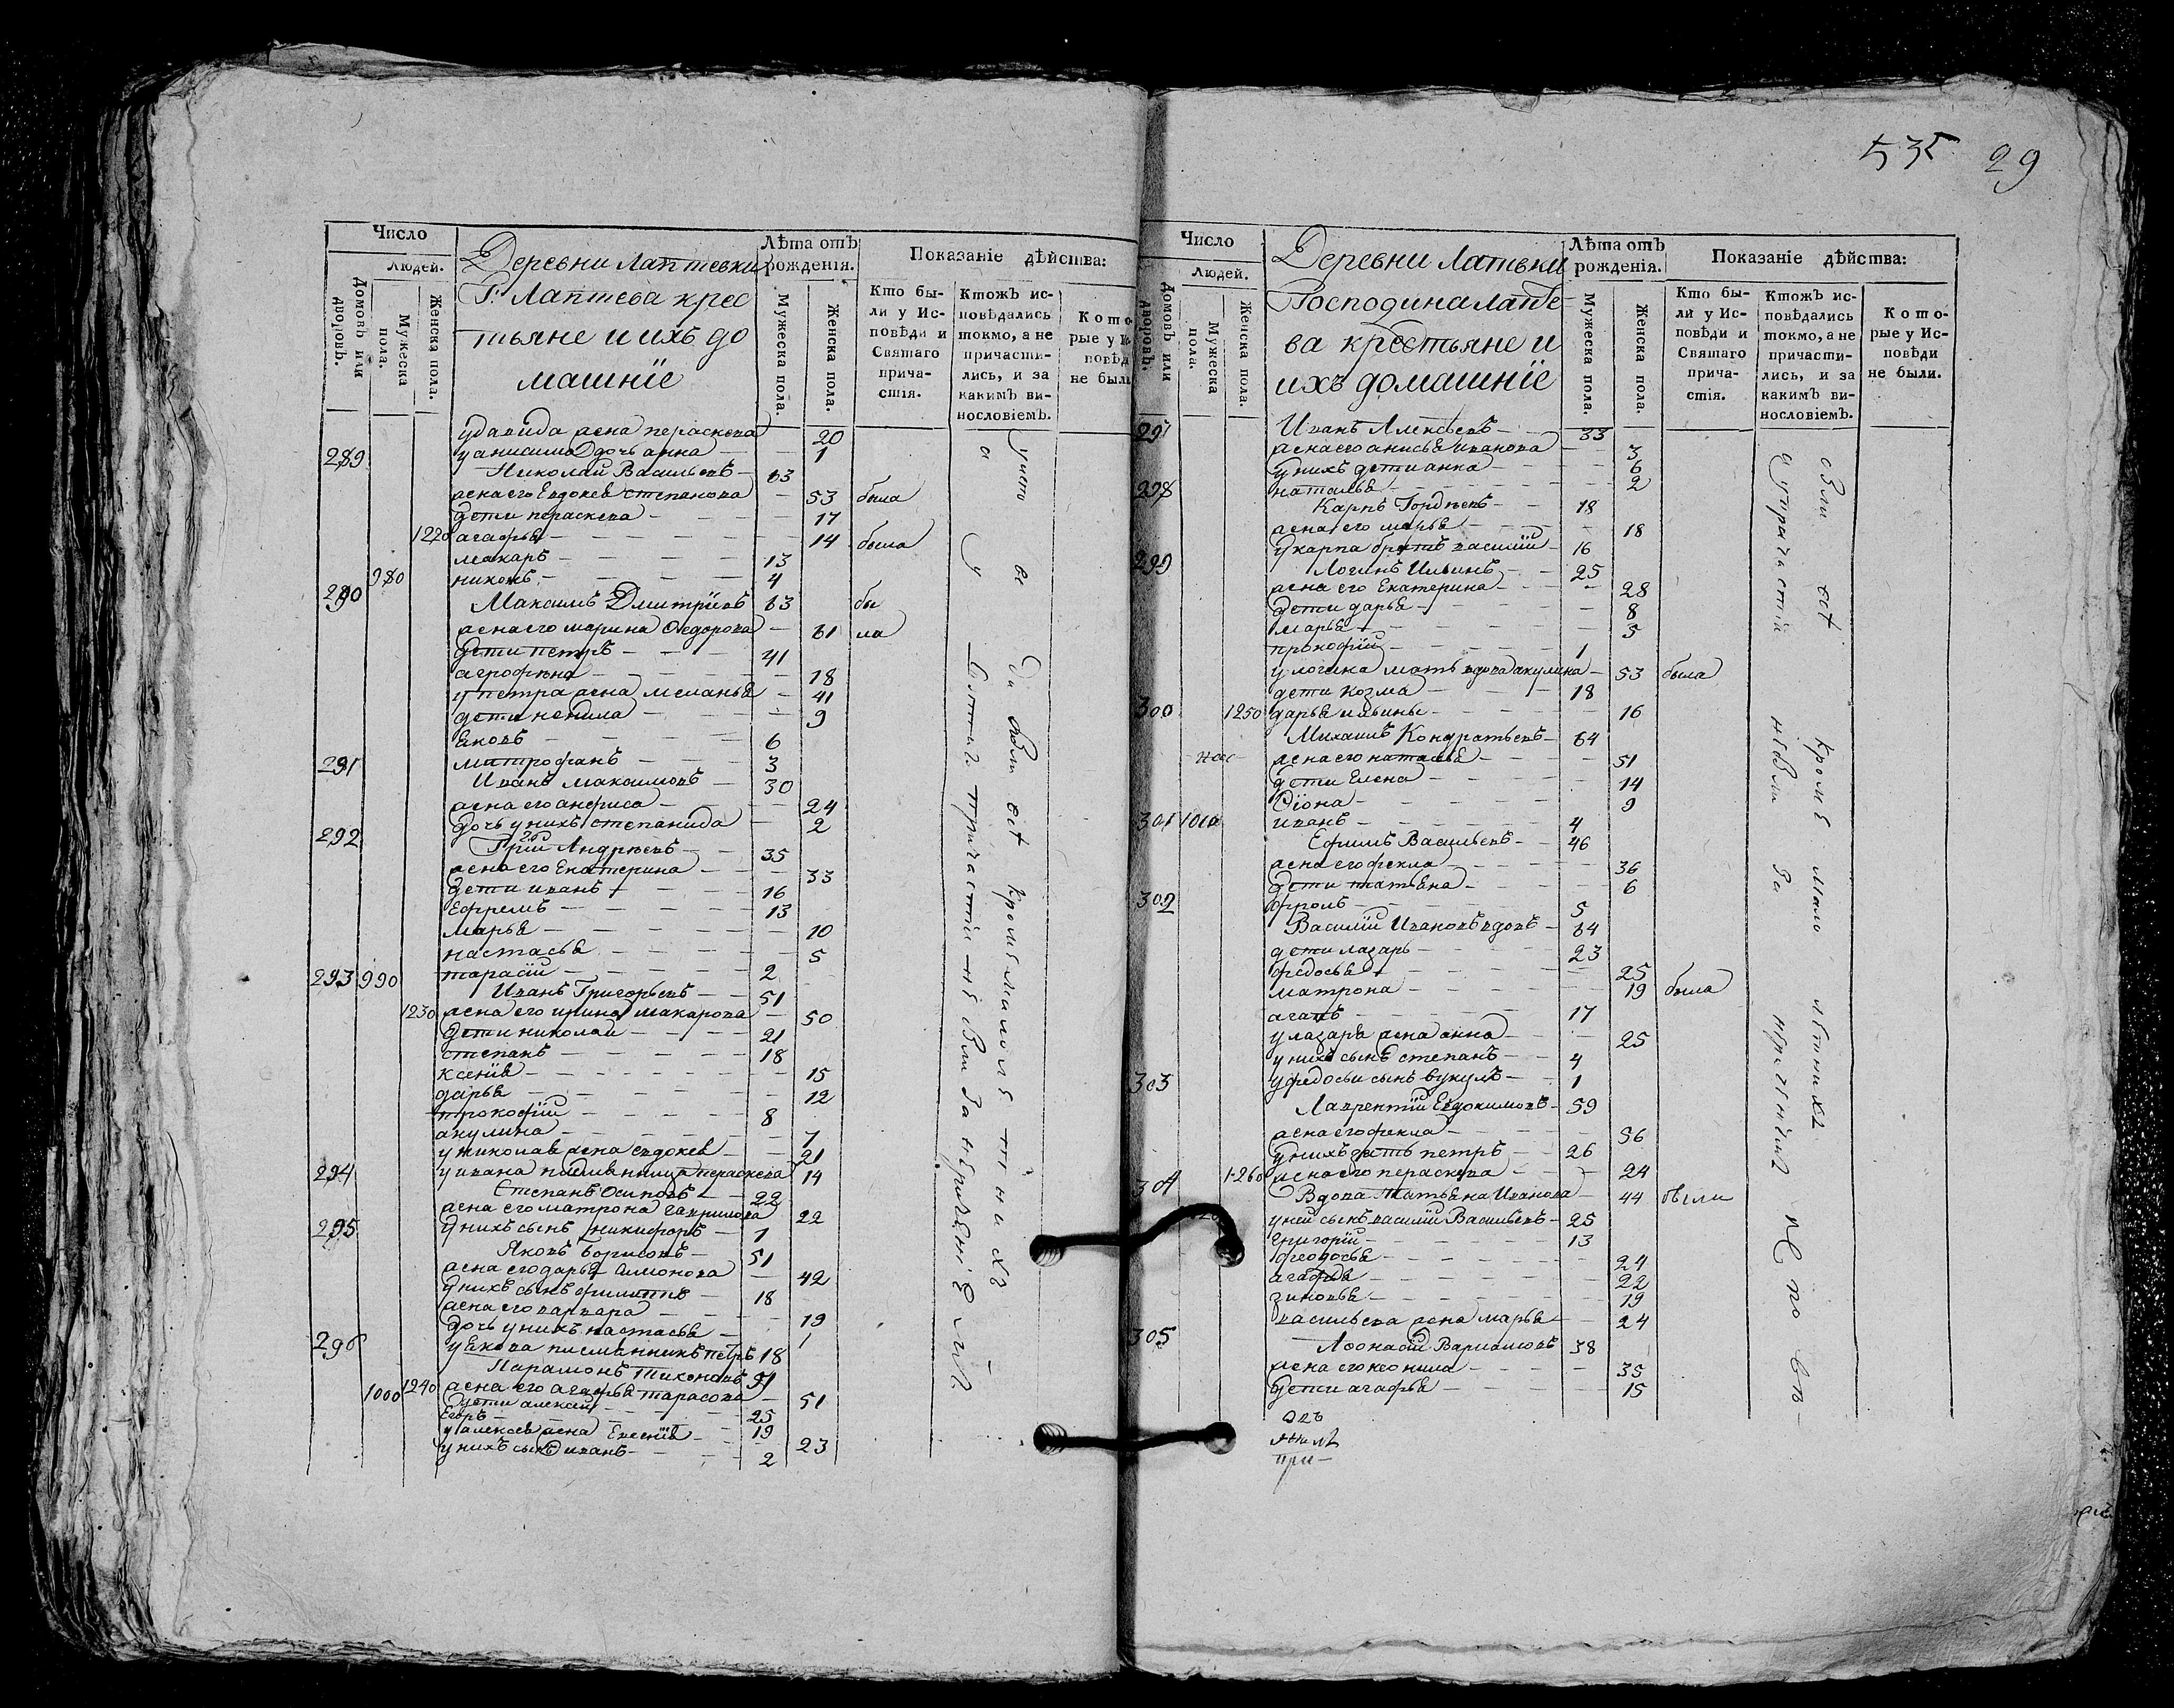 535 29
Число
Людей.
Домовъ или дворовъ.
Мужеска пола.
Женска пола.
Деревни Лаптевки
Г: Лаптева крес
тьяне и ихъ до
машніе
Лѣта отъ рожденія.
Мужеска пола.
Женска пола.
Показаніе дѣйства:
Кто бы-
ли у Ис-
повѣди и
Святаго
прича-
стія.
Ктожъ ис-
повѣдались
токмо, а не
причасти-
лись, и за
какимъ ви-
нословіемъ.
Кото-
рые у Ис-
повѣд
не были
у давида жена пераскева 20
у анисима дочь анна 1
289 Николай Васильевъ 63
жена его Евдокея степанова 53 была
дети пераскева 17
1220 агафья 14 была
макаръ 13
980 никонъ 4
290 Максимъ Дмитріевъ 63 бы
жена его марина Ѳедорова 61 ла
дети петръ 41
агрофѣна 18
у петра жена меланья 41
дети ненила 9
яковъ 6
митрофанъ 3
291 Иванъ Максимовъ 30
жена его анфиса 24
дочь у нихъ степанида 2
292 Грій Андрѣевъ 35
жена его Екатерина 33
дети иванъ 16
Ефремъ 13
марья 10
настасья 5
990 тарасій 2
293 Иванъ Григорьевъ 51
1230 жена его ирина макарова 50
дети николай 21
степанъ 18
ксенія 15
дарья 12
прокофій 8
акулина 7
у николая жена евдокея 21
у ивана племянница пераскева 14
294 Степанъ Осиповъ 22
жена его матрона гаврилова 22
у нихъ сынъ никифоръ 1
295 Яковъ Борисовъ 51
жена его дарья Симонова 42
у нихъ сынъ филиппъ 18
жена его варвара 19
дочь у нихъ настасья 1
у якова племянникъ петръ 18
296 Парамонъ Тихоновъ 51
1240 жена его агафья тарасова 51
1000 дети алексей 25
Егоръ 19
у алексея жена Евгенія 23
у нихъ сынъ иванъ 2
Число
Людей.
Домовъ или дворовъ.
Мужеска пола.
Женска пола.
Деревни Лаптевки
Господина лапте
ва крестьяне и
ихъ домашніе
Лѣта отъ рожденія.
Мужеска пола.
Женска пола.
Показаніе дѣйства:
Кто бы-
ли у Ис-
повѣди и
Святаго
прича-
стія.
Ктожъ ис-
повѣдались
токмо, а не
причасти-
лись, и за
какимъ ви-
нословіемъ.
Кото-
рые у Ис-
повѣди
не были.
297 Иванъ Алексѣевъ 33
жена его анисья иванова 3
у нихъ дети анна 6
наталья 2
298 Карпъ Гордѣевъ 18
жена его марья 18
у карпа братъ василій 16
299 Логинъ Ильинъ 25
жена его Екатерина 28
дети дарья 8
марья 5
прокофій 1
у логина мать вдова акулина 53 была
дети козма 18
1250 дарья ильины 16
300 Михаилъ Кондратьевъ 64
жена его наталья 51
дети Елена 14
Ѳіона 9
1010 иванъ 4
301 Ефимъ Васильевъ 46
жена его фекла 36
дети татьяна 6
фролъ 5
302 Василій Ивановъ вдовъ 64
дети лазарь 23
федосья 25
матрона 19 была
агапъ 17
у лазаря жена анна 25
у нихъ сынъ степанъ 4
у федосьи сынъ вукулъ 1
303 Лаврентій Евдокимовъ 59
жена его фекла 56
у нихъ дети петръ 26
1260 жена его пераскева 24
304 Вдова Татьяна Иванова 44 были
у ней сынъ василій Васильевъ 25
григорій 13
феодосья 24
агафья 22
зиновья 19
васильева жена марья 24
305 Аѳонасій Варламовъ 38
жена его неонила 35
дети агафья 15
при-